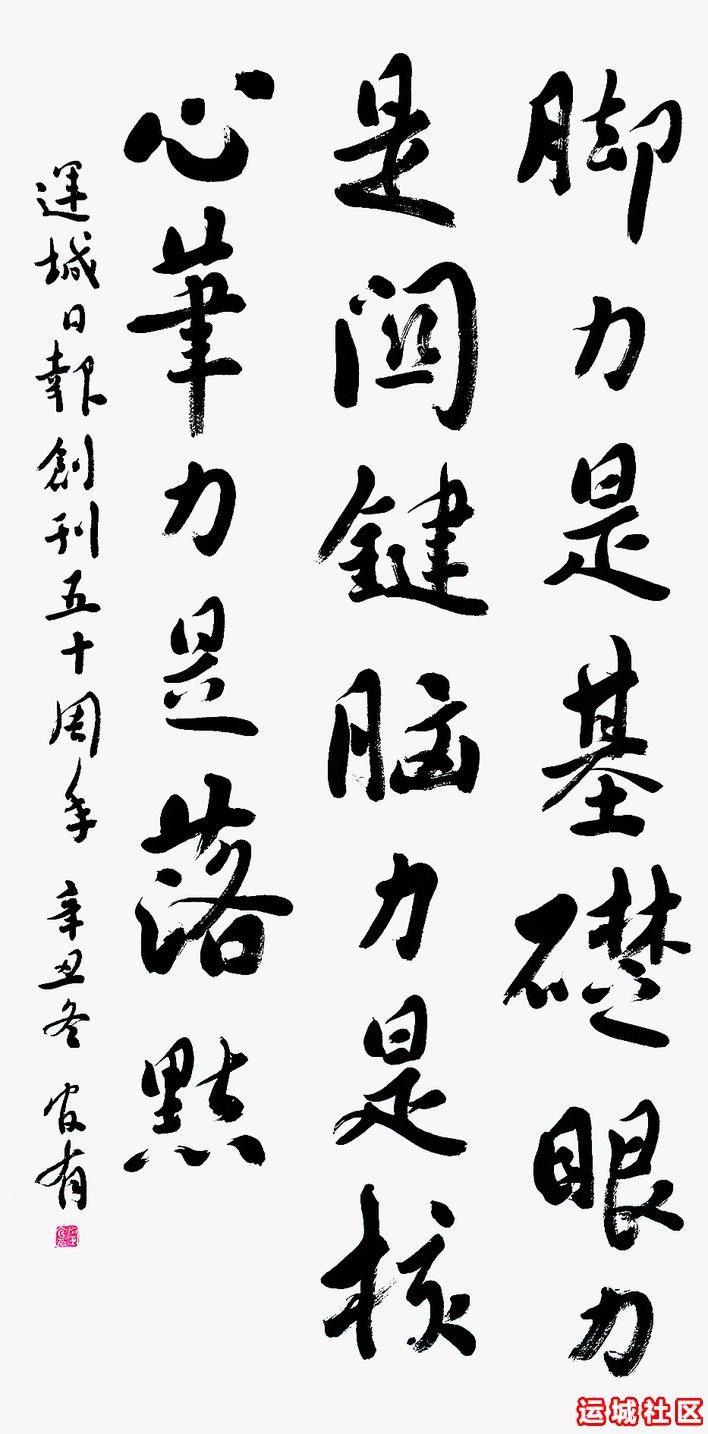 脚力是基礎眼力
是関鍵脑力是核
心筆力是落點
運城日報創刊五十周年 辛丑冬 官有
运城社区